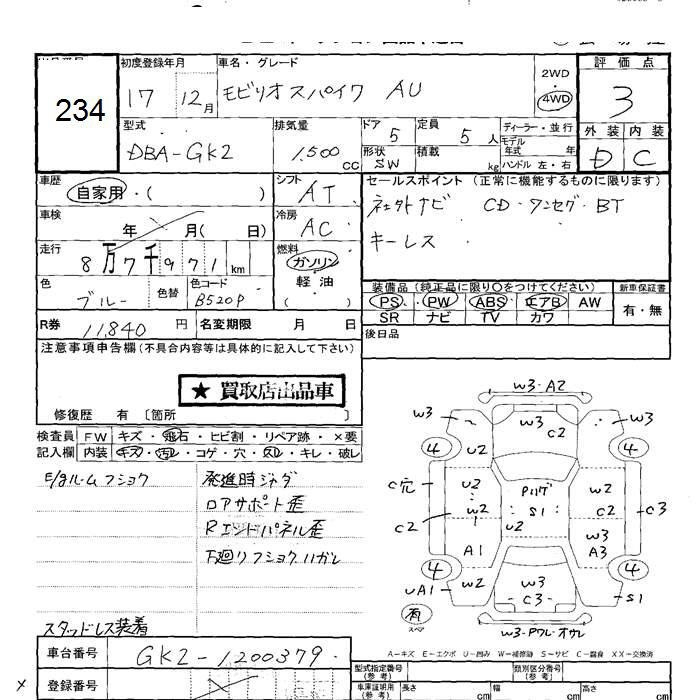 234
初度登録年月
17 12月
車名・グレード
モビリオスパイク AU
2WD
4WD
評価点
3
外装 内装
D C
型式
DBA-GK2
排気量
1,500 CC
ドア 5
定員 5人
形状 SW
積載 kg
ディーラー・並行
モデル年式 年
ハンドル 左・右
車歴
自家用・( )
車検
年 月( 日)
走行
8万7千971 km
色
ブルー
色替
色コード
B520P
シフト
AT
冷房
AC
燃料
ガソリン
軽油
( )
セールスポイント (正常に機能するものに限ります)
CD・ワンセグ・BT
キーレス
装備品(純正品に限り〇をつけてください)
PS PW ABS エアB AW
SR ナビ TV カワ
新車保証書
有・無
後日品
R券 11,840 円
名変期限 月 日
注意事項申告欄(不具合内容等は具体的に記入して下さい)
★ 買取店出品車
修復歴 有 〔箇所 〕
検査員記入欄
FW キズ・飛石・ヒビ割・リペア跡・×要
内装 キズ・汚レ・コゲ・穴・スレ・キレ・破レ
E/gルームフショク
発進時ジャダ
ロアサポート歪
Rエンドパネル歪
下廻りフショクハガレ
スタッドレス装着
W3・A2
W3 W3 W3
C2
4 4
U2
C穴 U2 Pハゲ W2
W2 S1 C2 C3
C2 U2 W3
A1 A3
4 4
UA1 W2 W3 S1
C3
有
スペア
W3・Pワレ・オサレ
A-キズ E-エクボ U-凹み W-補修跡 S-サビ C-腐食 XX-交換済
車台番号
GK2-1200379
登録番号
型式指定番号
(参考)
類別区分番号
(参考)
車庫証明用
(参考)
長さ cm
幅 cm
高さ cm